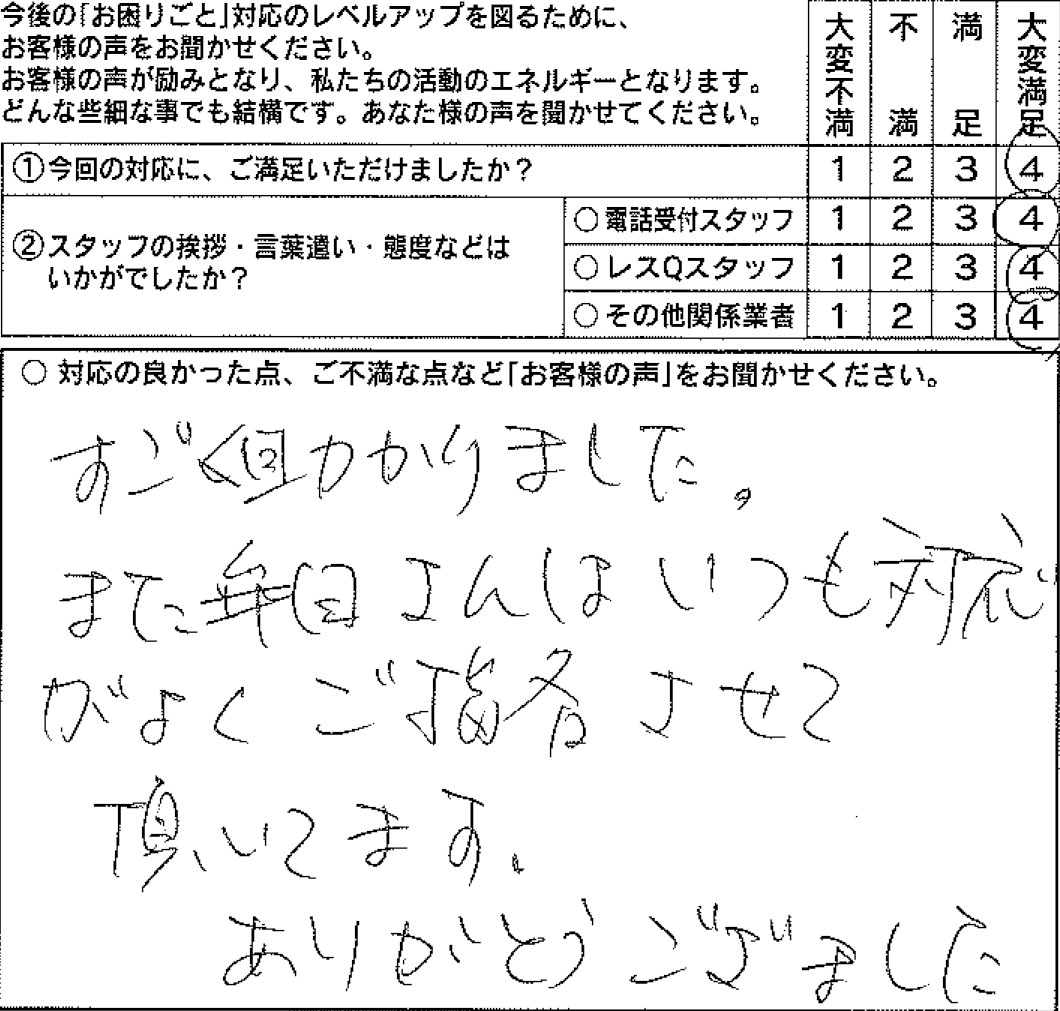 今後の「お困りごと」対応のレベルアップを図るために、
お客様の声をお聞かせください。
お客様の声が励みとなり、私たちの活動のエネルギーとなります。
どんな些細な事でも結構です。あなた様の声を聞かせてください。
大変不満 不満 満足 大変満足
①今回の対応に、ご満足いただけましたか？ 1 2 3 4
②スタッフの挨拶・言葉遣い・態度などは
いかがでしたか？
○電話受付スタッフ 1 2 3 4
○レスQスタッフ 1 2 3 4
○その他関係業者 1 2 3 4
○ 対応の良かった点、ご不満な点など「お客様の声」をお聞かせください。
すごく助かりました。
また さんはいつも対応
がよくご指名させて
頂いてます。
ありがとうござました